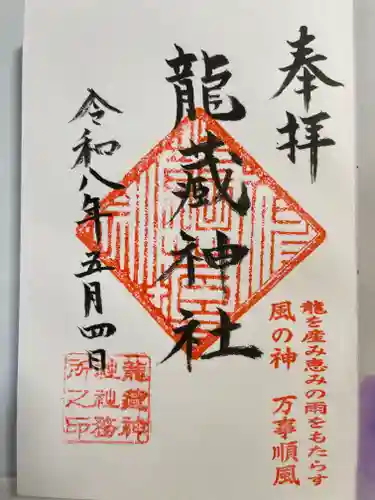 奉拝
龍蔵神社
令和八年五月四日
龍を産み恵みの雨をもたらす
風の神 万事順風
龍蔵神
社社務
所之印